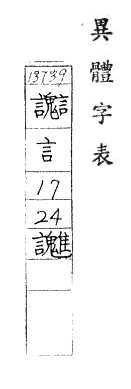 異體字表
13739
言
17
24